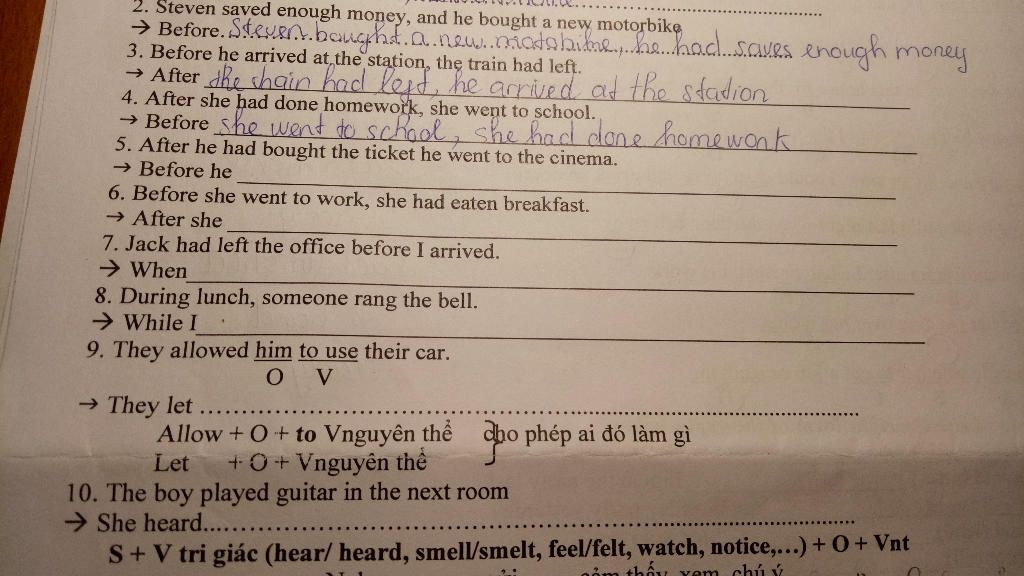 2. Steven saved enough money, and he bought a new motorbike
→ Before. Steven bought a new motobime, he had saves enough money
3. Before he arrived at the station, the train had left.
→ After the thain had left, he arrived at the station
4. After she had done homework, she went to school.
→ Before she went to school, she had done homework
5. After he had bought the ticket he went to the cinema.
→ Before he
6. Before she went to work, she had eaten breakfast.
→ After she
7. Jack had left the office before I arrived.
→ When
8. During lunch, someone rang the bell.
→ While I
9. They allowed him to use their car.
O V
→ They let ................................................................
Allow + O + to Vnguyên thể cho phép ai đó làm gì
Let + O + Vnguyên thể
10. The boy played guitar in the next room
→ She heard................................................................
S + V tri giác (hear/ heard, smell/smelt, feel/felt, watch, notice,...) + O + Vnt
cảm thấy, xem, chú ý